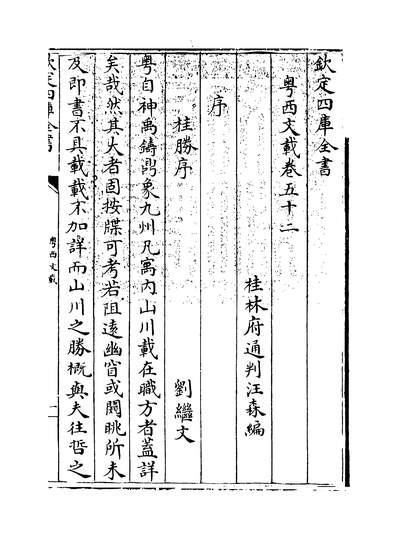 欽定四庫全書
粵西文載卷五十二
桂林府通判汪森編
序
桂勝序
劉繼文
粵自神禹鑄鼎象九州凡寓內山川載在職方者蓋詳
矣哉然其大者固按牒可考若阻遠幽窅或闕眺所未
及即書不具載載不加詳而山川之勝概與夫往哲之
欽定四庫全書
粵西文載